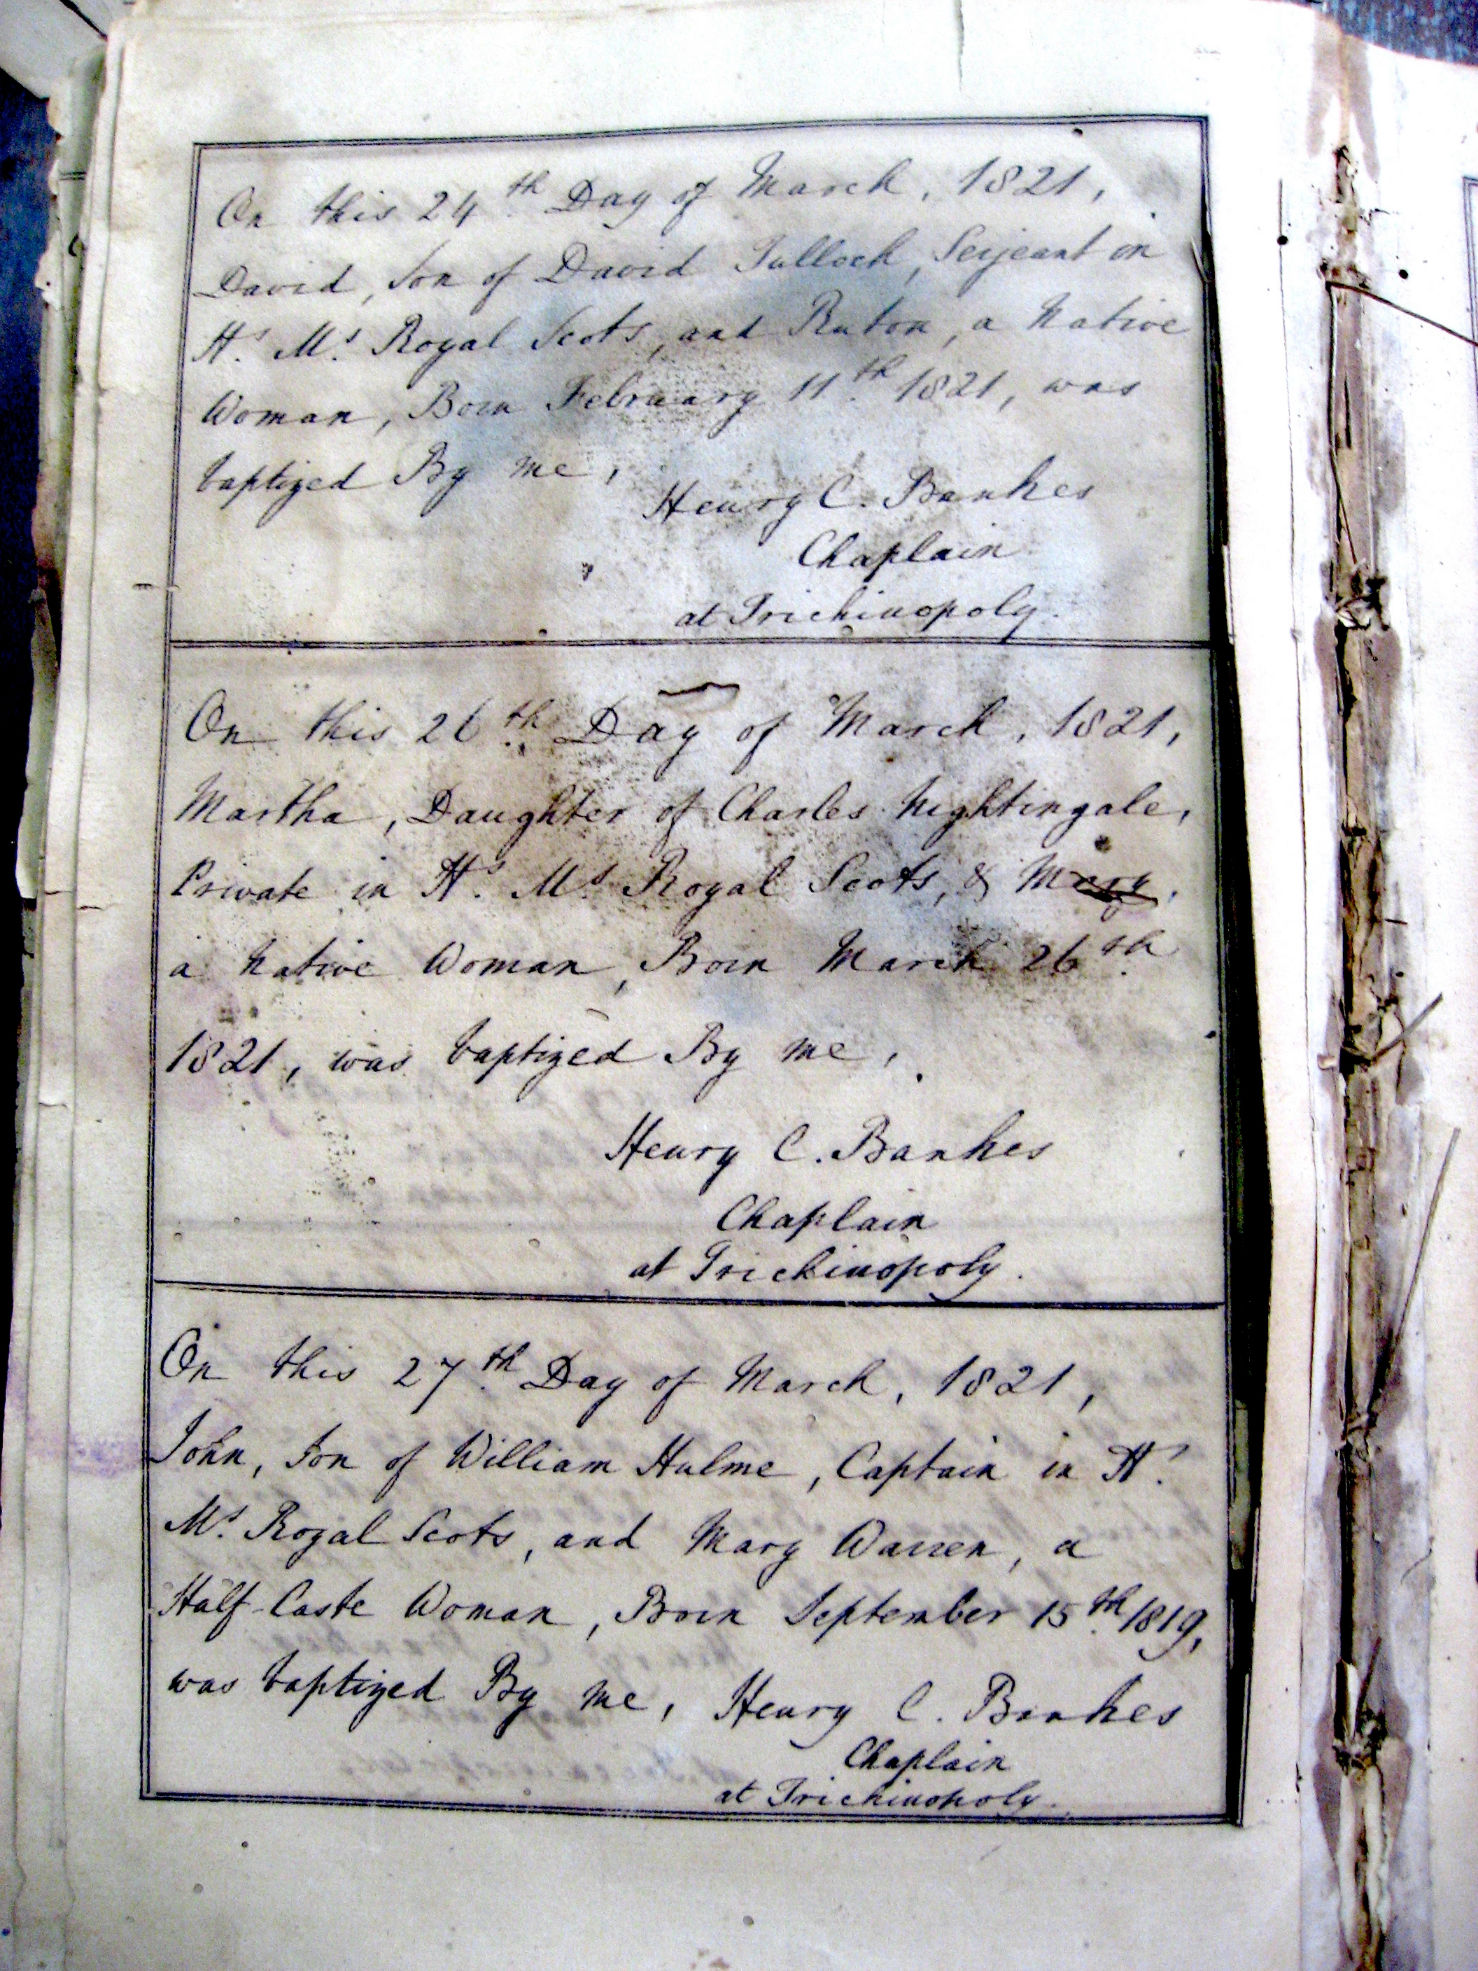 On this 24th Day of March, 1821,
David, Son of David Tulloch, Serjeant in
H.s M.s Royal Scots, and Ruton, a Native
Woman, Born February 11th 1821, was
baptized By me,
Henry C. Bankes
Chaplain
at Trichinopoly.
On this 26th Day of March, 1821,
Martha, Daughter of Charles Nightingale,
Private in H.s M.s Royal Scots, & Mary,
a Native Woman, Born March 26th
1821, was baptized By me,
Henry C. Bankes
Chaplain
at Trichinopoly.
On this 27th Day of March, 1821,
John, Son of William Hulme, Captain in H.s
M.s Royal Scots, and Mary Warren, a
Half-Caste Woman, Born September 15th 1819,
was baptized By me, Henry C. Bankes
Chaplain
at Trichinopoly.